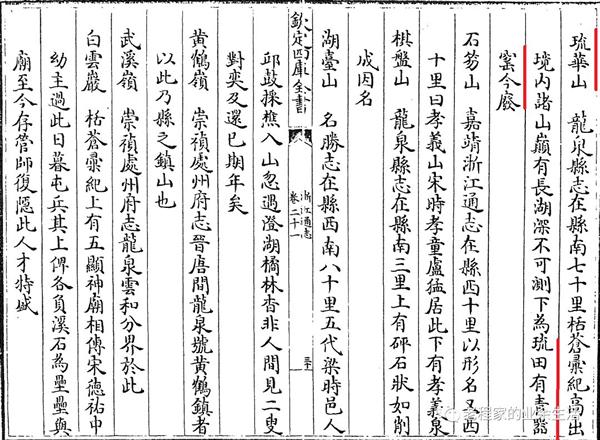 琉華山　龍泉縣志在縣南七十里栝蒼彚紀高出
境内諸山巔有長湖深不可測下為琉田有青器
窰今廢
石笏山　嘉靖浙江通志在縣西十里以形名又西
十里曰孝義山宋時孝童盧猛居此下有孝義泉
棋盤山　龍泉縣志在縣南三里上有砰石狀如削
成因名
湖臺山　名勝志在縣西南八十里五代梁時邑人
欽定四庫全書
浙江通志
卷二十一
邱㪇採樵入山忽遇澄湖橘林香非人間見二叟
對奕及還已期年矣
黄鶴嶺　崇禎處州府志晉唐間龍泉號黄鶴鎮者
以此乃縣之鎮山也
武溪嶺　崇禎處州府志龍泉雲和分界於此
白雲巖　栝蒼彚紀上有五顯神廟相傳宋德祐中
幼主過此日暮屯兵其上俾各負溪石為壘壘與
廟至今存管師復隱此人才特盛
老程家的业余生活